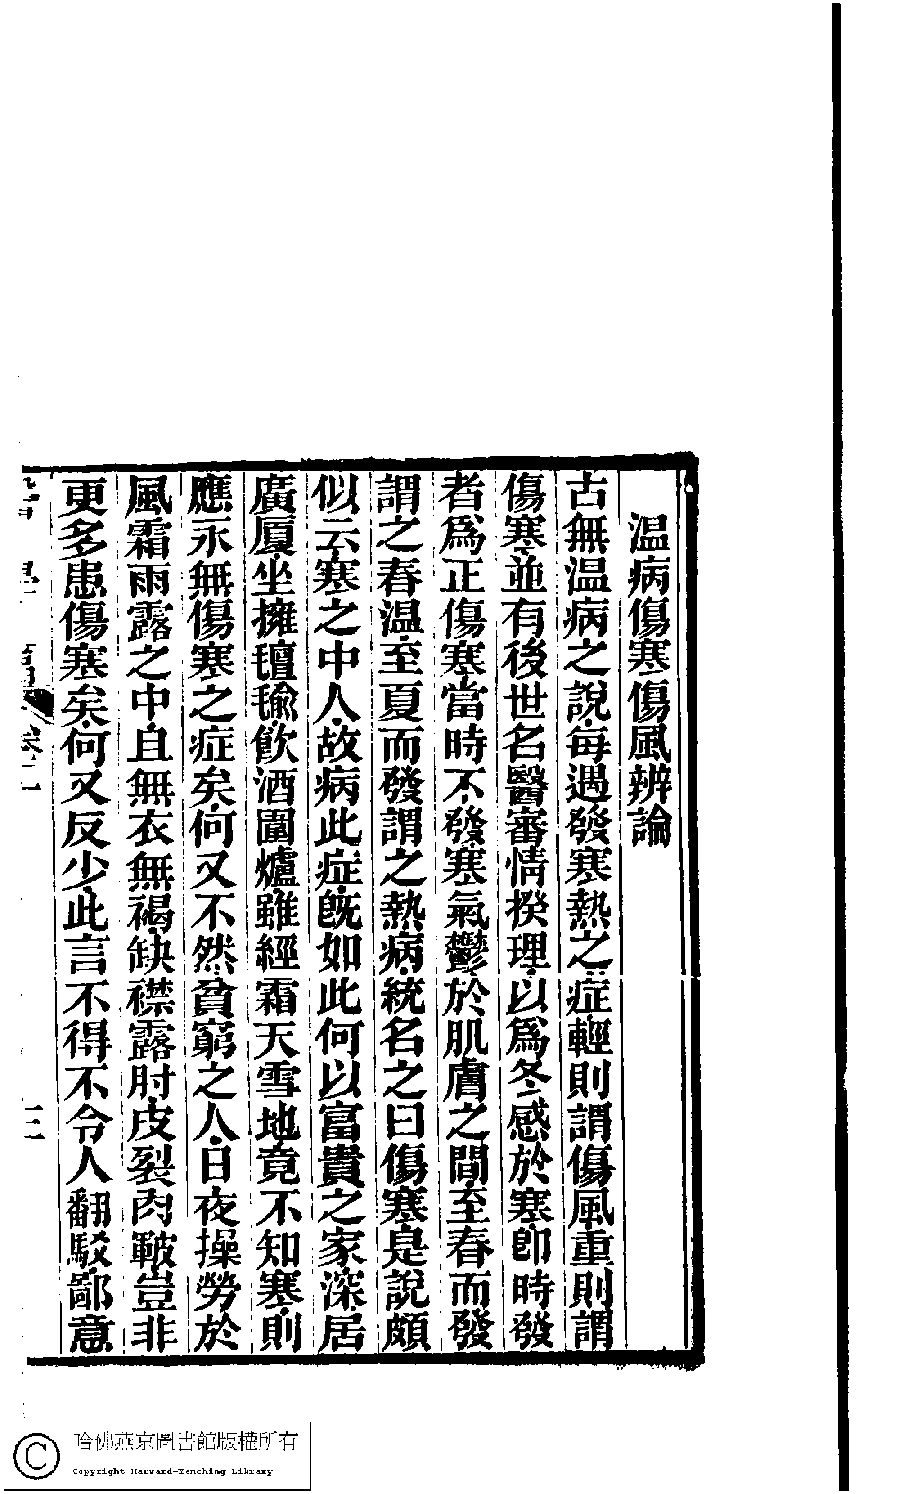 温病傷寒傷風辨論
古無温病之說每遇發寒熱之症輕則謂傷風重則謂
傷寒並有後世名醫審情揆理以爲冬感於寒卽時發
者爲正傷寒當時不發寒氣鬱於肌膚之間至春而發
謂之春温至夏而發謂之熱病統名之曰傷寒是說頗
似云寒之中人故病此症旣如此何以富貴之家深居
廣厦坐擁氊毹飮酒圍爐雖經霜天雪地竟不知寒則
應永無傷寒之症矣何又不然貧窮之人日夜操勞於
風霜雨露之中且無衣無褐缺襟露肘皮裂肉皸豈非
更多患傷寒矣何又反少此言不得不令人翻駁鄙意
卷二
三
哈佛燕京圖書館版權所有
Copyright Harvard-Yenching Library